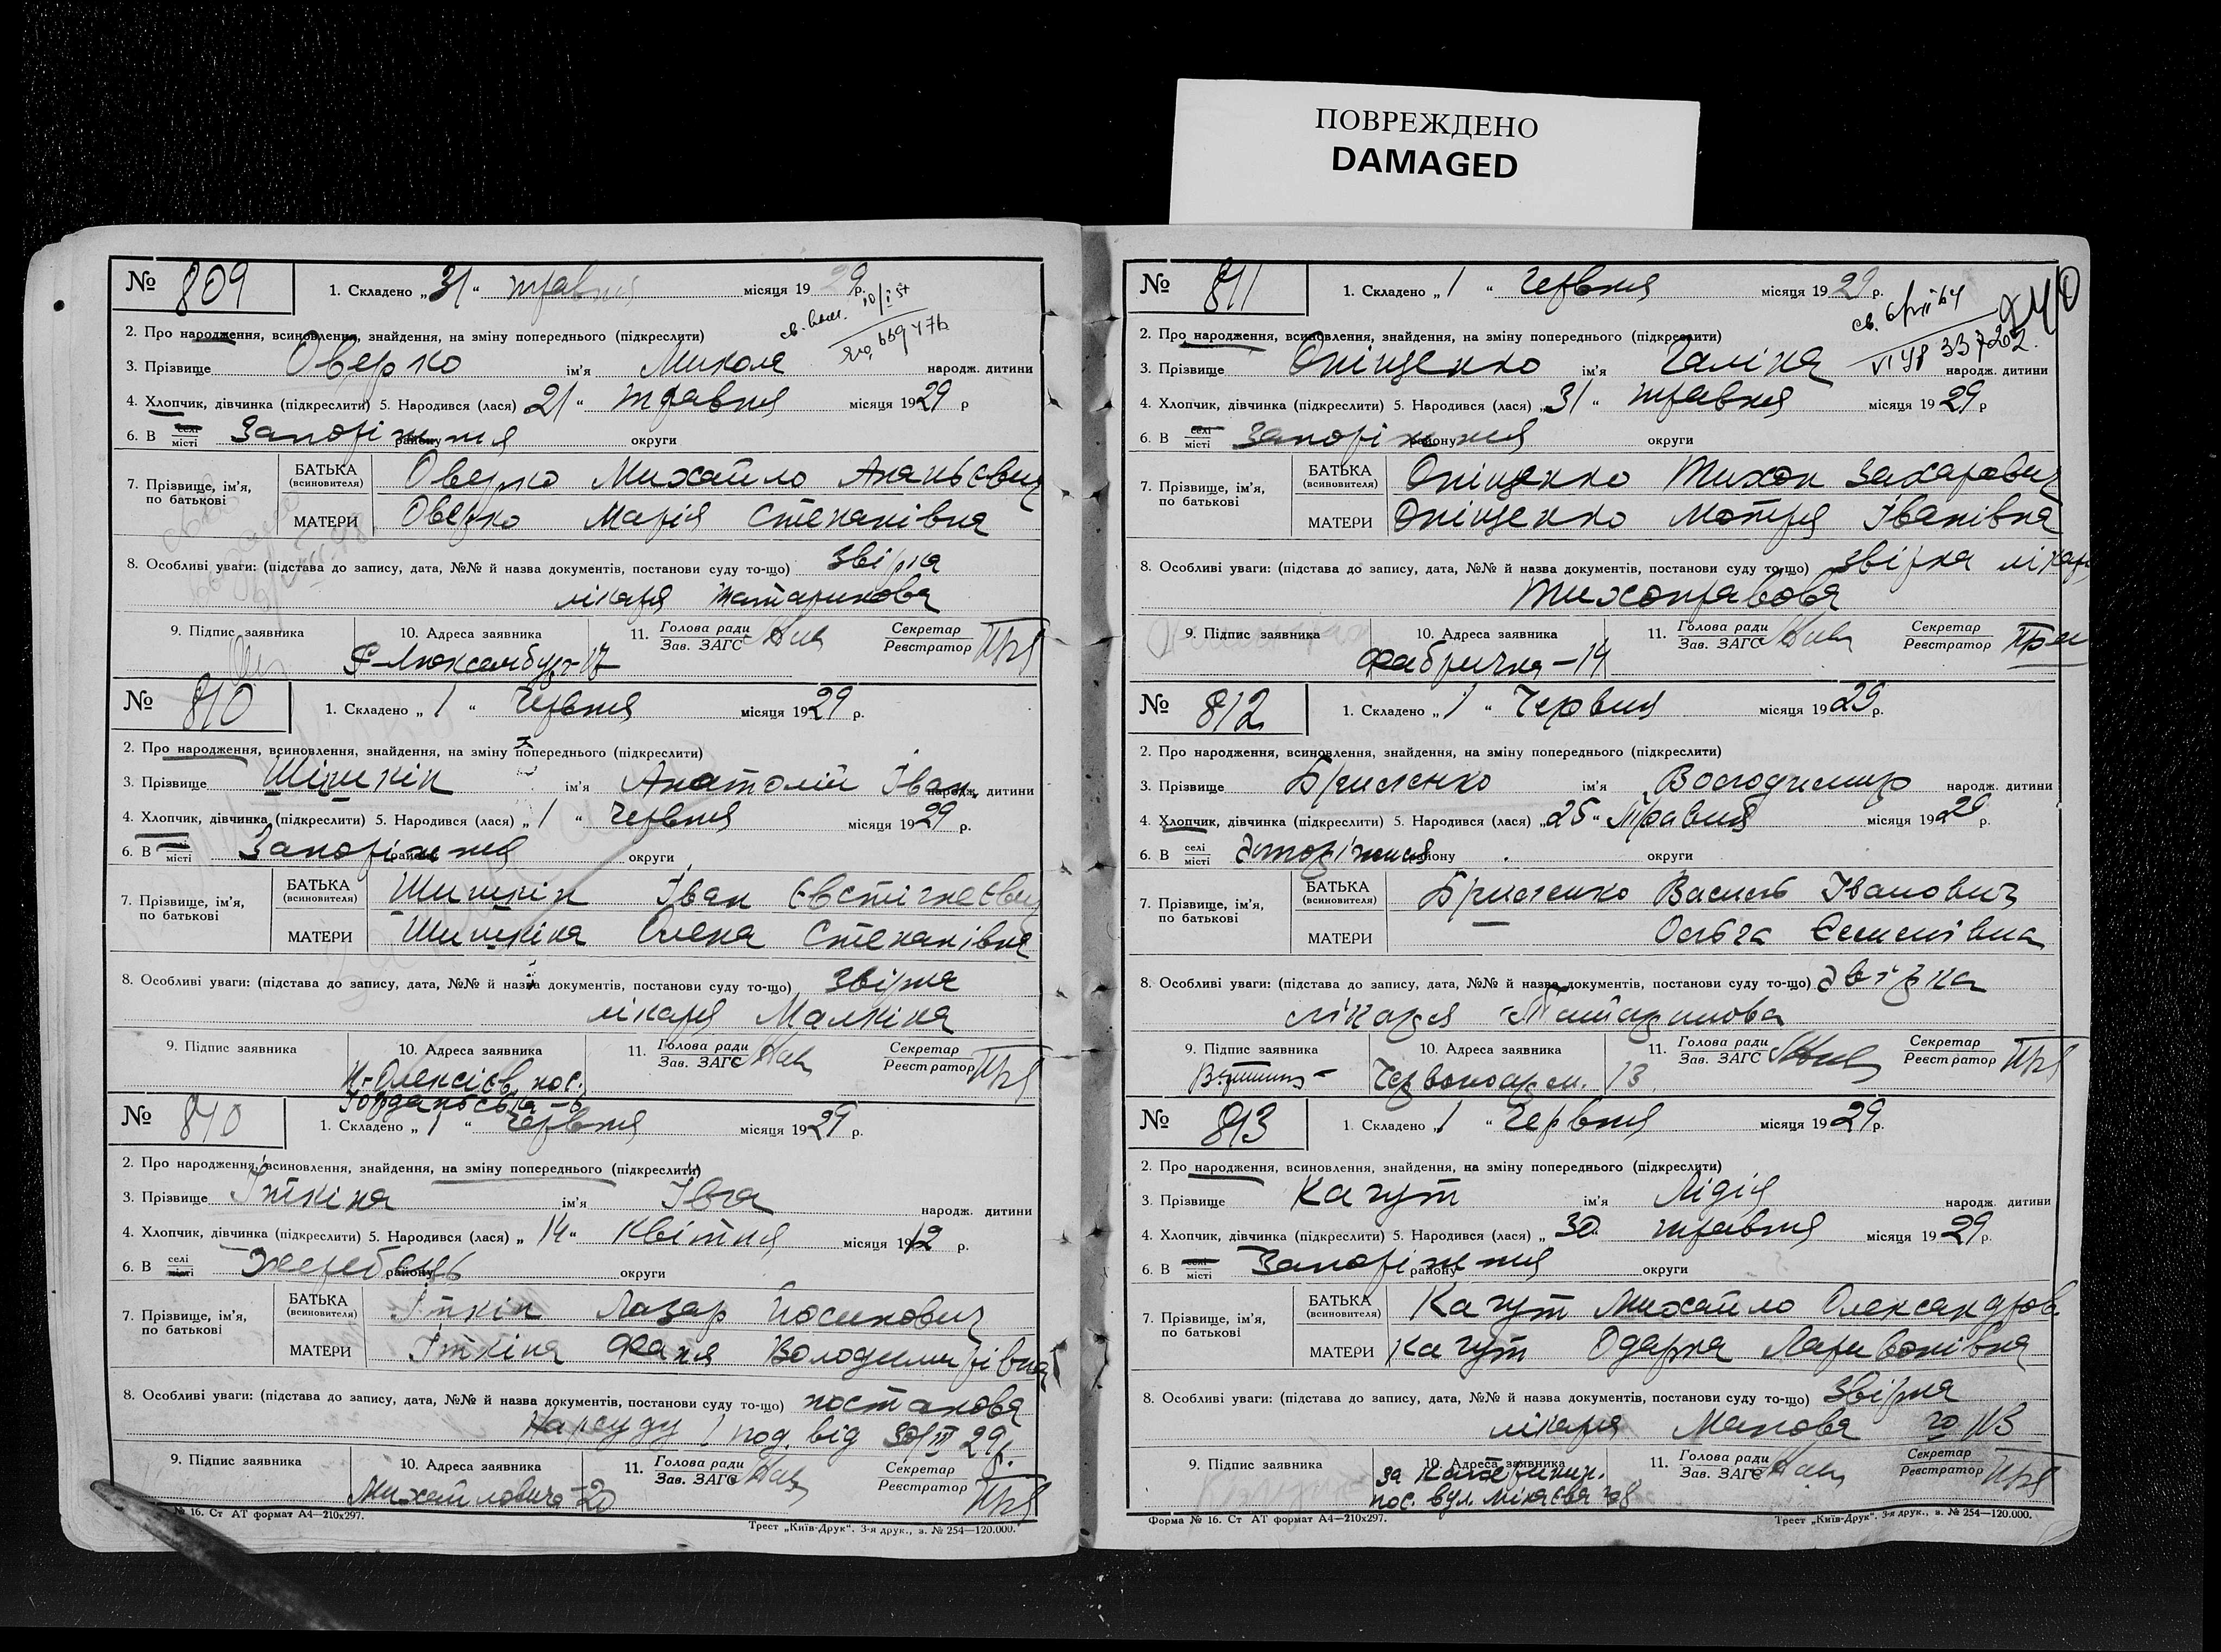 ПОВРЕЖДЕНО
DAMAGED
№ 809
1. Складено „31“ травня місяця 1929 р.
2. Про народження, всиновлення, знайдення, на зміну попереднього (підкреслити)
3. Прізвище Оверко ім'я Микола народж. дитини
4. Хлопчик, дівчинка (підкреслити) 5. Народився (лася) 21 “ травня місяця 1929 р
6. В селі місті Запоріжжя району округи
7. Прізвище, ім'я, по батькові
БАТЬКА (всиновителя) Оверко Михайло Ананьєвич
МАТЕРИ Оверко Марія Степанівна
8. Особливі уваги: (підстава до запису, дата, №№ й назва документів, постанови суду то-що) Звірка
лікаря Татаринова
9. Підпис заявника 10. Адреса заявника 11. Голова ради Зав. ЗАГС Секретар Реєстратор
Р-Люксембург-17
№ 810
1. Складено „ 1 “ Червня місяця 1929 р.
2. Про народження, всиновлення, знайдення, на зміну попереднього (підкреслити)
3. Прізвище Шішкін ім'я Анатолій Іван. народж. дитини
4. Хлопчик, дівчинка (підкреслити) 5. Народився (лася) „ 1 “ Червня місяця 1929 р.
6. В місті Запоріжжя району округи
7. Прізвище, ім'я, по батькові
БАТЬКА (всиновителя) Шишкін Іван Євстігнеєвич
МАТЕРИ Шишкіна Олена Степанівна
8. Особливі уваги: (підстава до запису, дата, №№ й назва документів, постанови суду то-що) Звірка
лікаря Малкіна
9. Підпис заявника 10. Адреса заявника 11. Голова ради Зав. ЗАГС Секретар Реєстратор
Н-Олексієв. пос.
№ 810
1. Складено „ 1 “ Червня місяця 1929 р.
2. Про народження, всиновлення, знайдення, на зміну попереднього (підкреслити)
3. Прізвище Іткіна ім'я Івга народж. дитини
4. Хлопчик, дівчинка (підкреслити) 5. Народився (лася) „ 14 “ Квітня місяця 1912 р.
6. В селі місті Жеребець району округи
7. Прізвище, ім'я, по батькові
БАТЬКА (всиновителя) Іткін Лазар Йосипович
МАТЕРИ Іткіна Фаня Володимирівна
8. Особливі уваги: (підстава до запису, дата, №№ й назва документів, постанови суду то-що) постанова
Нарсуду 1 под. від 30/III 29р.
9. Підпис заявника 10. Адреса заявника 11. Голова ради Зав. ЗАГС Секретар Реєстратор
Михайловича-20
№ 16. Ст АТ формат А4—210х297.
Трест „Київ-Друк". 3-я друк., з. № 254—120.000.
№ 811
1. Складено „ 1 “ Червня місяця 1929 р.
2. Про народження, всиновлення, знайдення, на зміну попереднього (підкреслити)
3. Прізвище Оніщенко ім'я Галіна народж. дитини
4. Хлопчик, дівчинка (підкреслити) 5. Народився (лася) „31 “ травня місяця 1929 р
6. В селі місті Запоріжжя району округи
7. Прізвище, ім'я, по батькові
БАТЬКА (всиновителя) Оніщенко Тихон Захарович
МАТЕРИ Оніщенко Мотря Іванівна
8. Особливі уваги: (підстава до запису, дата, №№ й назва документів, постанови суду то-що) звірка лікаря
Тихонравова
9. Підпис заявника 10. Адреса заявника 11. Голова ради Зав. ЗАГС Секретар Реєстратор
Фабрична-14
№ 812
1. Складено „ 1 “ Червня місяця 1929 р.
2. Про народження, всиновлення, знайдення, на зміну попереднього (підкреслити)
3. Прізвище ім'я Володимир народж. дитини
4. Хлопчик, дівчинка (підкреслити) 5. Народився (лася) „25 “ Травня місяця 1929 р.
6. В селі місті Запоріжжя району округи
7. Прізвище, ім'я, по батькові
БАТЬКА (всиновителя) Василь Іванович
МАТЕРИ — Ольга
8. Особливі уваги: (підстава до запису, дата, №№ й назва документів, постанови суду то-що) звірка
лікаря Татаринова
9. Підпис заявника 10. Адреса заявника 11. Голова ради Зав. ЗАГС Секретар Реєстратор
Червоноарм. 13
№ 813
1. Складено „1 “ Червня місяця 1929 р.
2. Про народження, всиновлення, знайдення, на зміну попереднього (підкреслити)
3. Прізвище Кагут ім'я Лідія народж. дитини
4. Хлопчик, дівчинка (підкреслити) 5. Народився (лася) „ 30 травня місяця 1929 р.
6. В селі місті Запоріжжя району округи
7. Прізвище, ім'я, по батькові
БАТЬКА (всиновителя) Кагут Михайло Олександров
МАТЕРИ Кагут Одарка Ларивонівна
8. Особливі уваги: (підстава до запису, дата, №№ й назва документів, постанови суду то-що) Звірка
лікаря
9. Підпис заявника 10. Адреса заявника 11. Голова ради Зав. ЗАГС Секретар Реєстратор
за Катеринин.
пос. вул.
Форма № 16. Ст АТ формат А4—210х297.
Трест „Київ-Друк". 3-я друк., з. № 254—120.000.